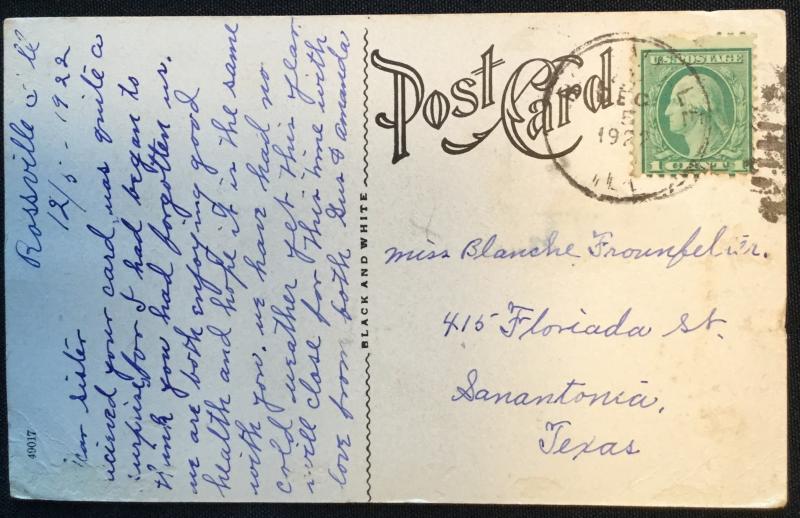 Rossville Ill
12/5-1922
Dear sister
recieved your card was quite a
surprise for I had began to
think you had forgotten us.
we are both enjoying good
health and hope it is the same
with you. we have had no
cold weather yet this year
will close for this time with
love from both Gus & Amanda
49017
BLACK AND WHITE
Post Card
DEC
5
1922
ILL
U.S. POSTAGE
1 CENT 1
Miss Blanche
415 Floriada St.
Sanantonia,
Texas